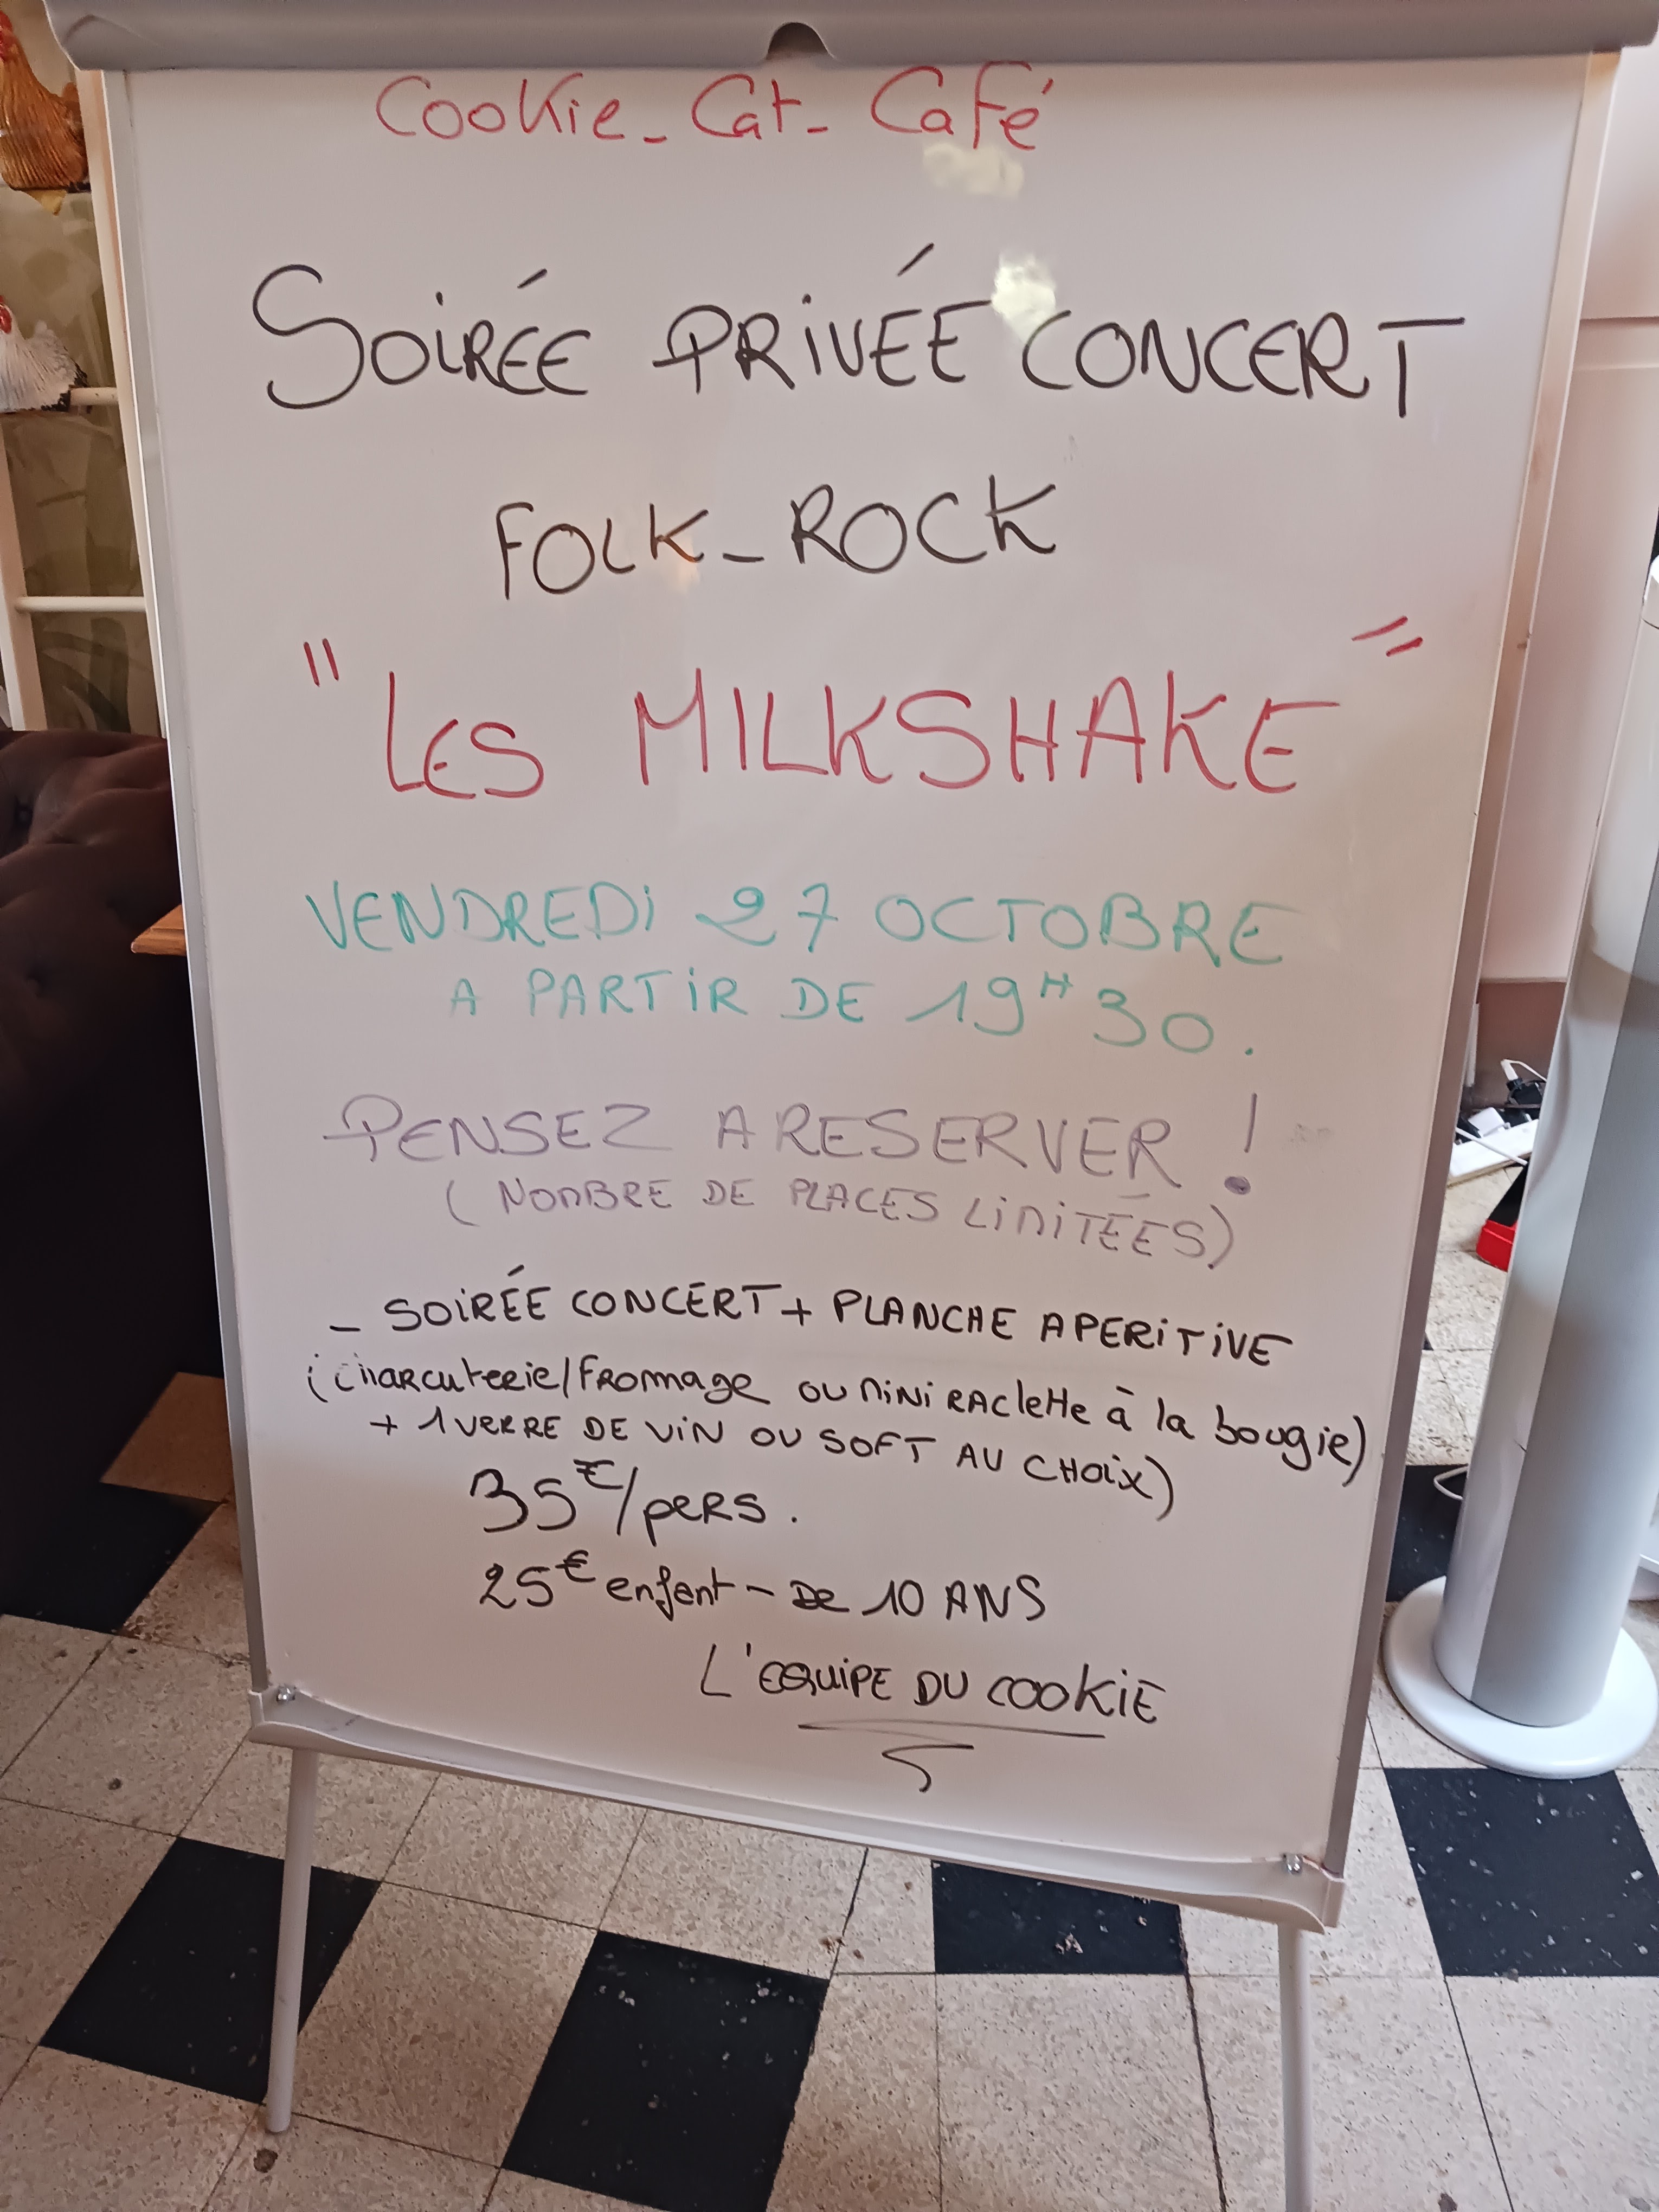 Cookie_Cat_Café
SOIRÉE PRIVÉE CONCERT
FOLK_ROCK
"LES MILKSHAKE"
VENDREDI 27 OCTOBRE
A PARTIR DE 19H30.
PENSEZ A RESERVER !
(NOMBRE DE PLACES LIMITÉES)
_ SOIRÉE CONCERT + PLANCHE APERITIVE
(Charcuterie/Fromage ou mini raclette à la bougie)
+ 1 VERRE DE VIN OU SOFT AU CHOIX)
35€/pers.
25€ enfant - de 10 ANS
L'EQUIPE DU COOKIE